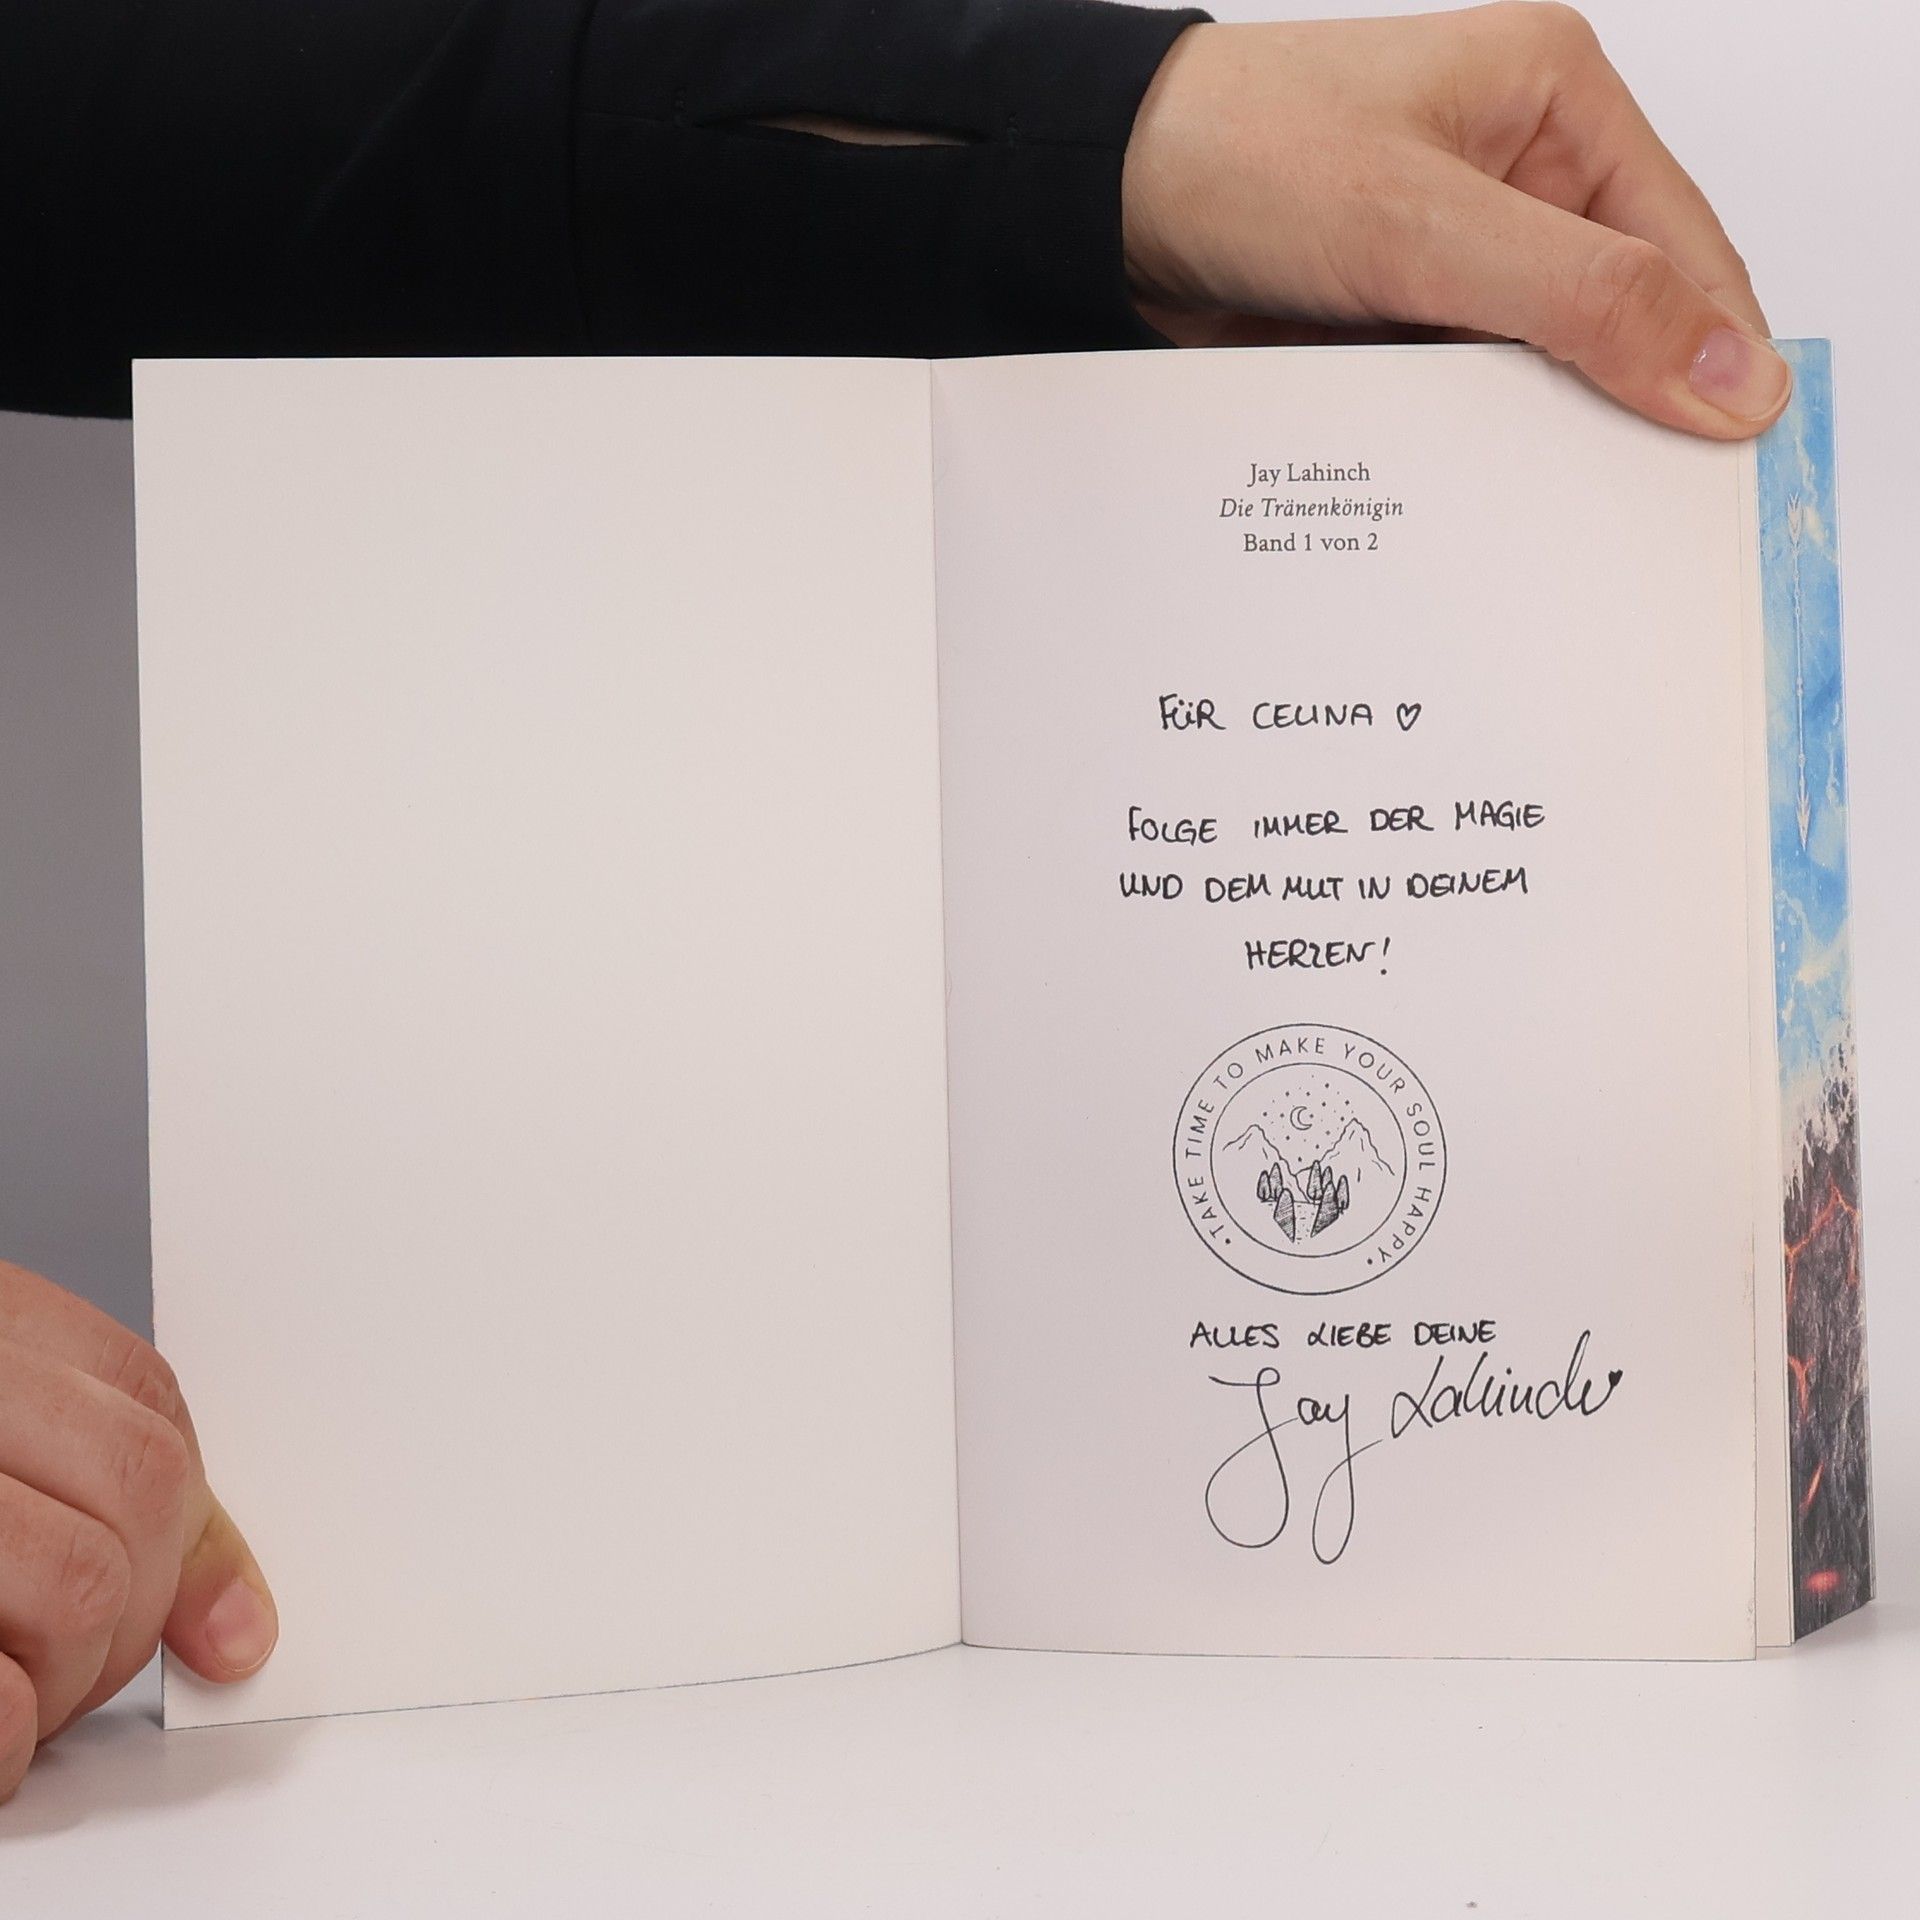 Jay Lahinch
Die Tränenkönigin
Band 1 von 2
FÜR CELINA ♡
FOLGE IMMER DER MAGIE
UND DEM MUT IN DEINEM
HERZEN!
• TAKE TIME TO MAKE YOUR SOUL HAPPY •
ALLES LIEBE DEINE
Jay Lahinch